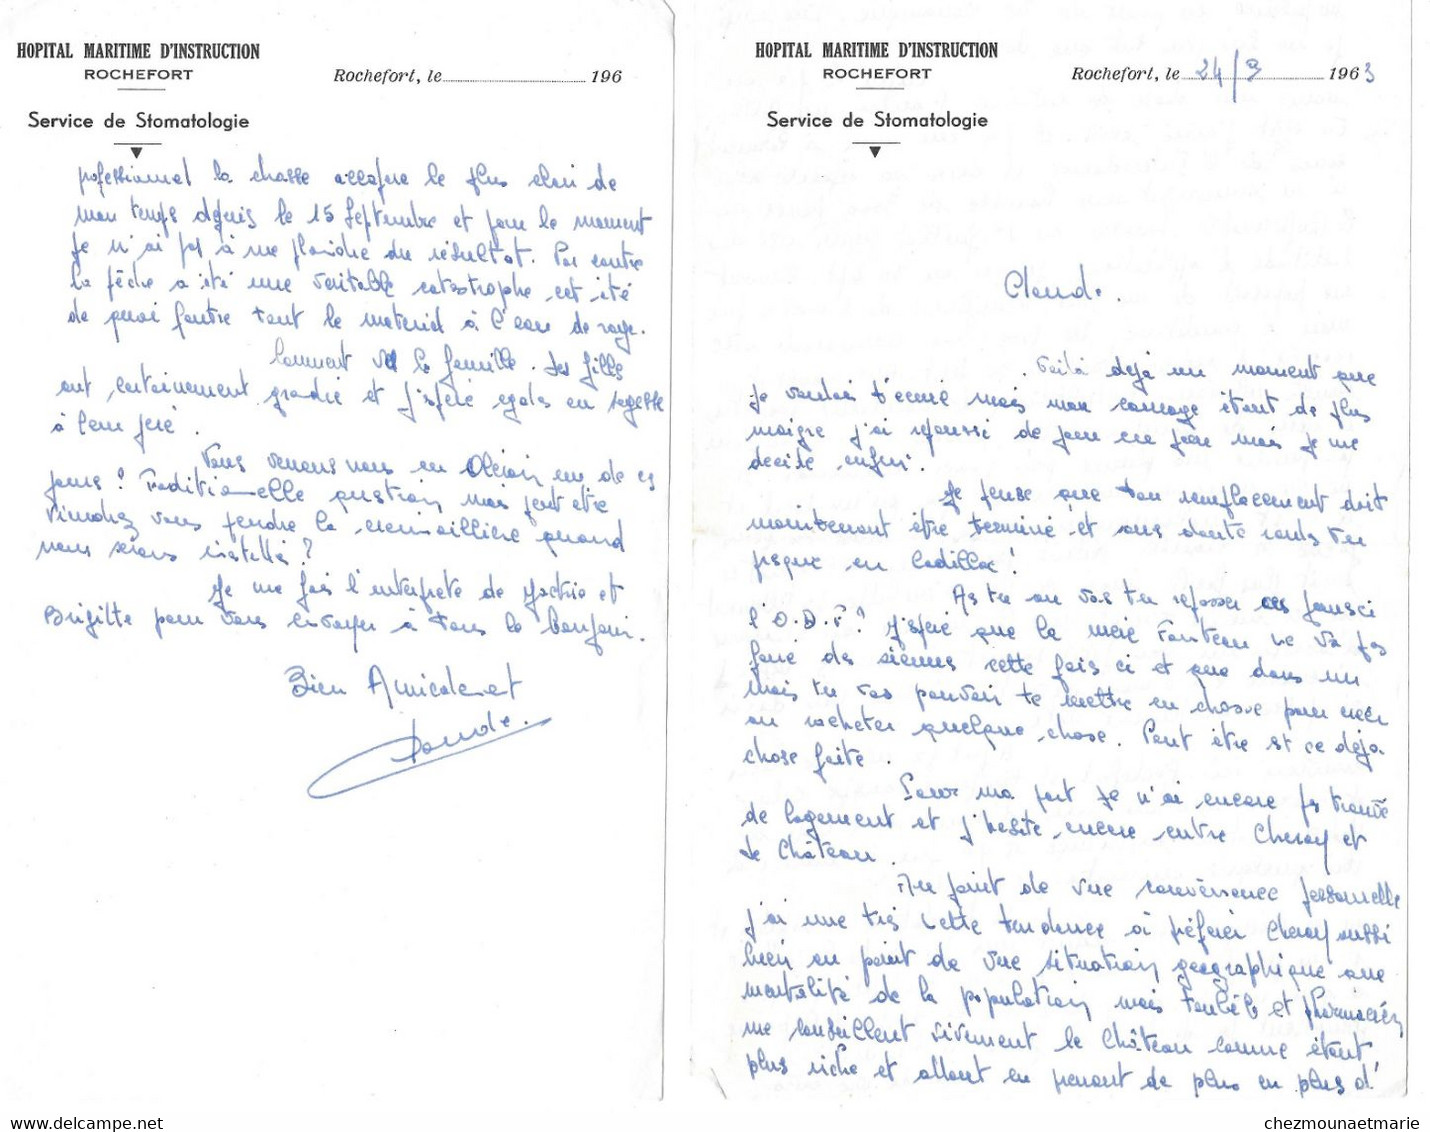 HOPITAL MARITIME D'INSTRUCTION
ROCHEFORT
Rochefort, le 196
Service de Stomatologie
professionnel la chasse accapare le plus clair de
mon temps depuis le 15 Septembre et pour le moment
je n'ai pas à me plaindre du résultat. Par contre
la pêche a été une veritable catastrophe, cet été
de quoi foutre tout le materiel à l'eau de rage.
Comment va la famille. Les filles
ont certainement grandie et j'espère egales en sagesse
à leur père.
Vous verrons nous en Oléron un de ces
jours? Traditionnelle question mais peut etre
viendrez vous pendre la cremaillière quand
nous serons installé?
Je me fais l'interprete de et
Brigitte pour vous envoyer à tous le bonjour.
Bien Amicalement
Claude.
HOPITAL MARITIME D'INSTRUCTION
ROCHEFORT
Rochefort, le 24/9 1963
Service de Stomatologie
Claude.
Voilà dejà un moment que
je voulais t'écrire mais mon courage étant de plus
maigre j'ai repoussé de jour en jour mais je me
decide enfin.
Je pense que ton remplacement doit
maintenant être terminé et sans doute roules tu
jusque en Cadillac!
As tu ou vas tu repasser ces jours ci
l'O.D.F? J'espère que la mère ne va pas
faire des siennes cette fois ci et que dans un
mois tu vas pouvoir te mettre en chasse pour créer
ou racheter quelque chose. Peut être est ce déja
chose faite.
Pour ma part je n'ai encore pas trouvé
de logement et j'hesite encore entre Cheray et
le Château.
Au point de vue convenence personnelle
j'ai une très nette tendance à préférer Cheray aussi
bien au point de vue situation geographique que
mentalité de la population mais toubib et pharmacien
me conseillent vivement le Château comme étant
plus riche et allant en prenant de plus en plus d'
chezmounaetmarie